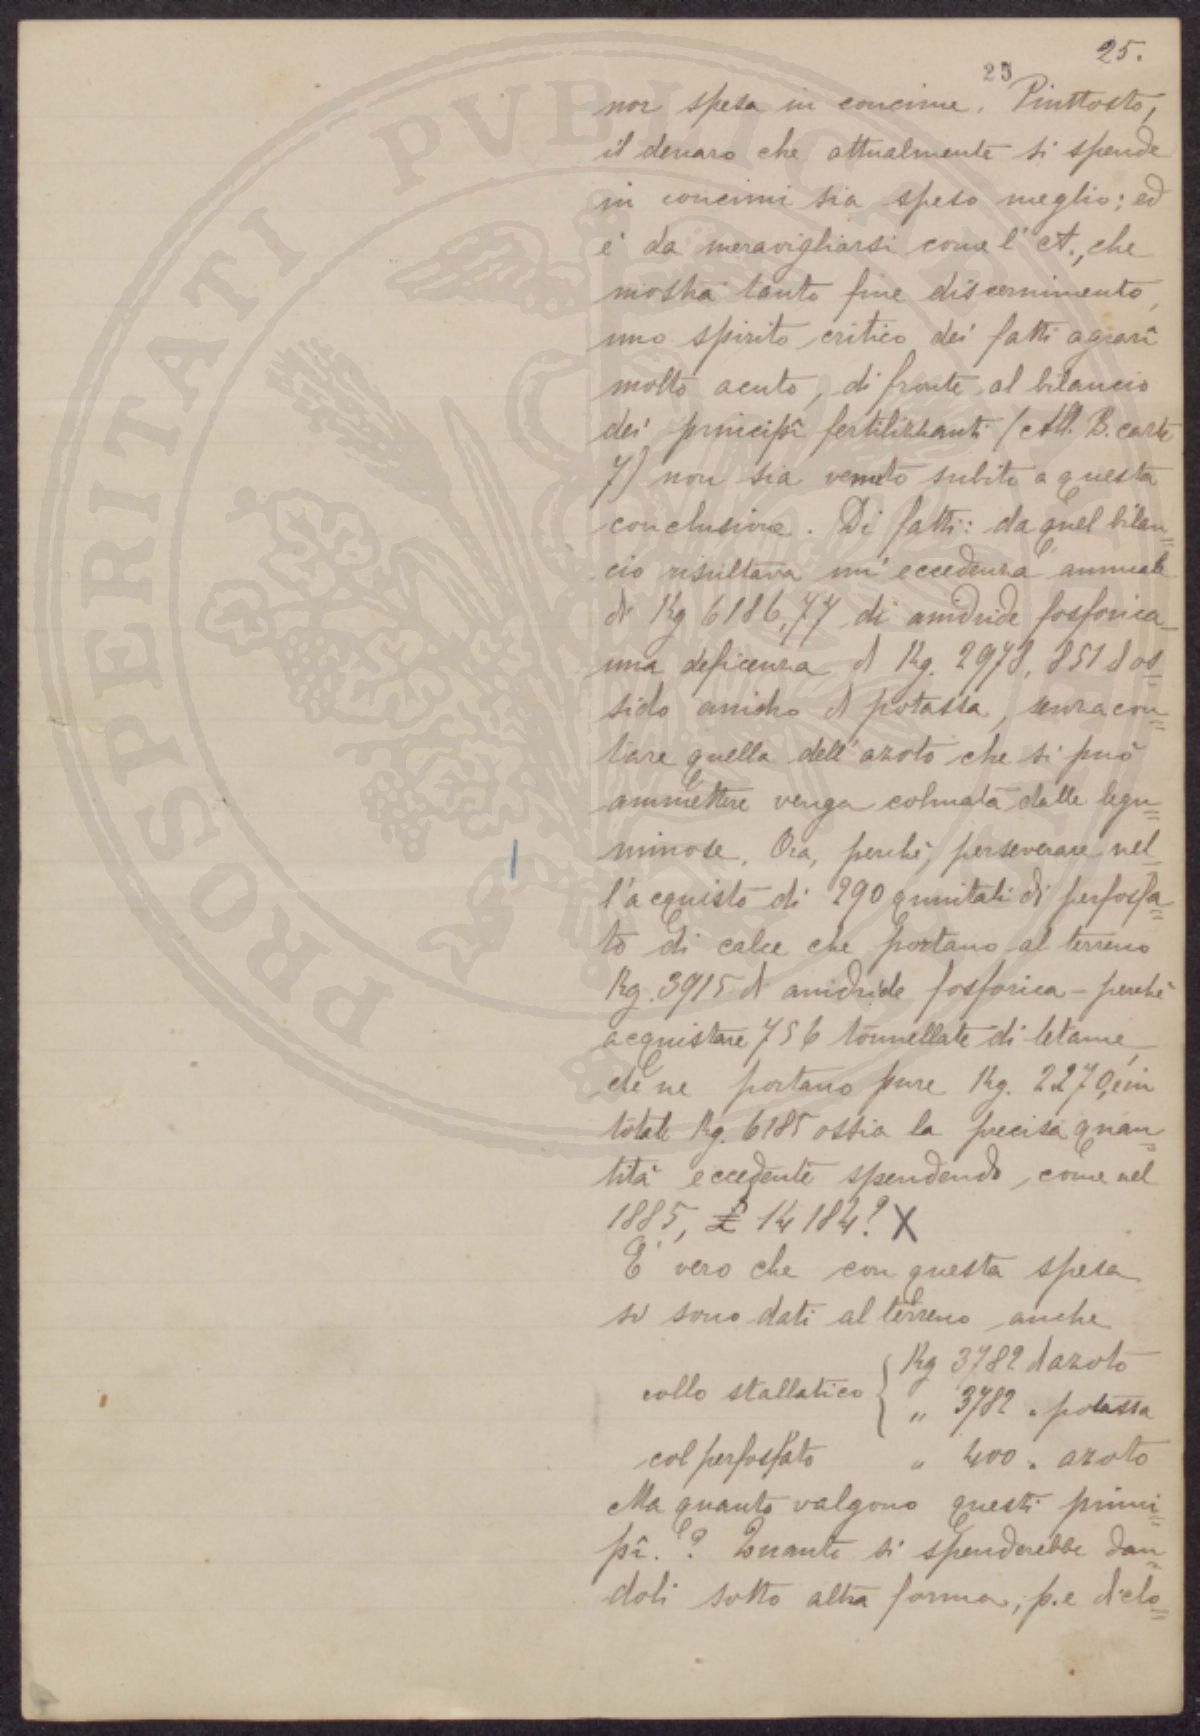 25.
25
nor spesa in concime. Piuttosto,
il denaro che attualmente si spende
in concimi sia speso meglio; ed
è da meravigliarsi come l'A., che
mostra tanto fine discernimento,
uno spirito critico dei fatti agrarî
molto acuto, di fronte al bilancio
dei principî fertilizzanti (All. B. carte
7) non sia venuto subito a questa
conclusione. Di fatti: da quel bilan=
cio risultava un'eccedenza annuale
di Kg 6186,77 di anidride fosforica
una deficenza di Kg. 2978,851 d'os=
sido anidro di potassa, senza con=
tare quella dell'azoto che si può
ammettere venga colmata dalle legu=
minose. Ora, perchè perseverare nel=
l'acquisto di 290 quintali di perfosfa=
to di calce che portano al terreno
Kg. 3915 di anidride fosforica - perchè
acquistare 756 tonnellate di letame,
che ne portano pure Kg. 2270, e in
totale Kg. 6185 ossia la precisa quan=
tità eccedente spendendo, come nel
1885, £ 14184? X
E' vero che con questa spesa
si sono dati al terreno anche
collo stallatico { Kg 3782 d'azoto
" 3782 " potassa
col perfosfato " 400 " azoto
Ma quanto valgono questi princi=
pî? Quanto si spenderebbe dan=
doli sotto altra forma, p.e di clo=
PROSPERITATI PVBLICAE